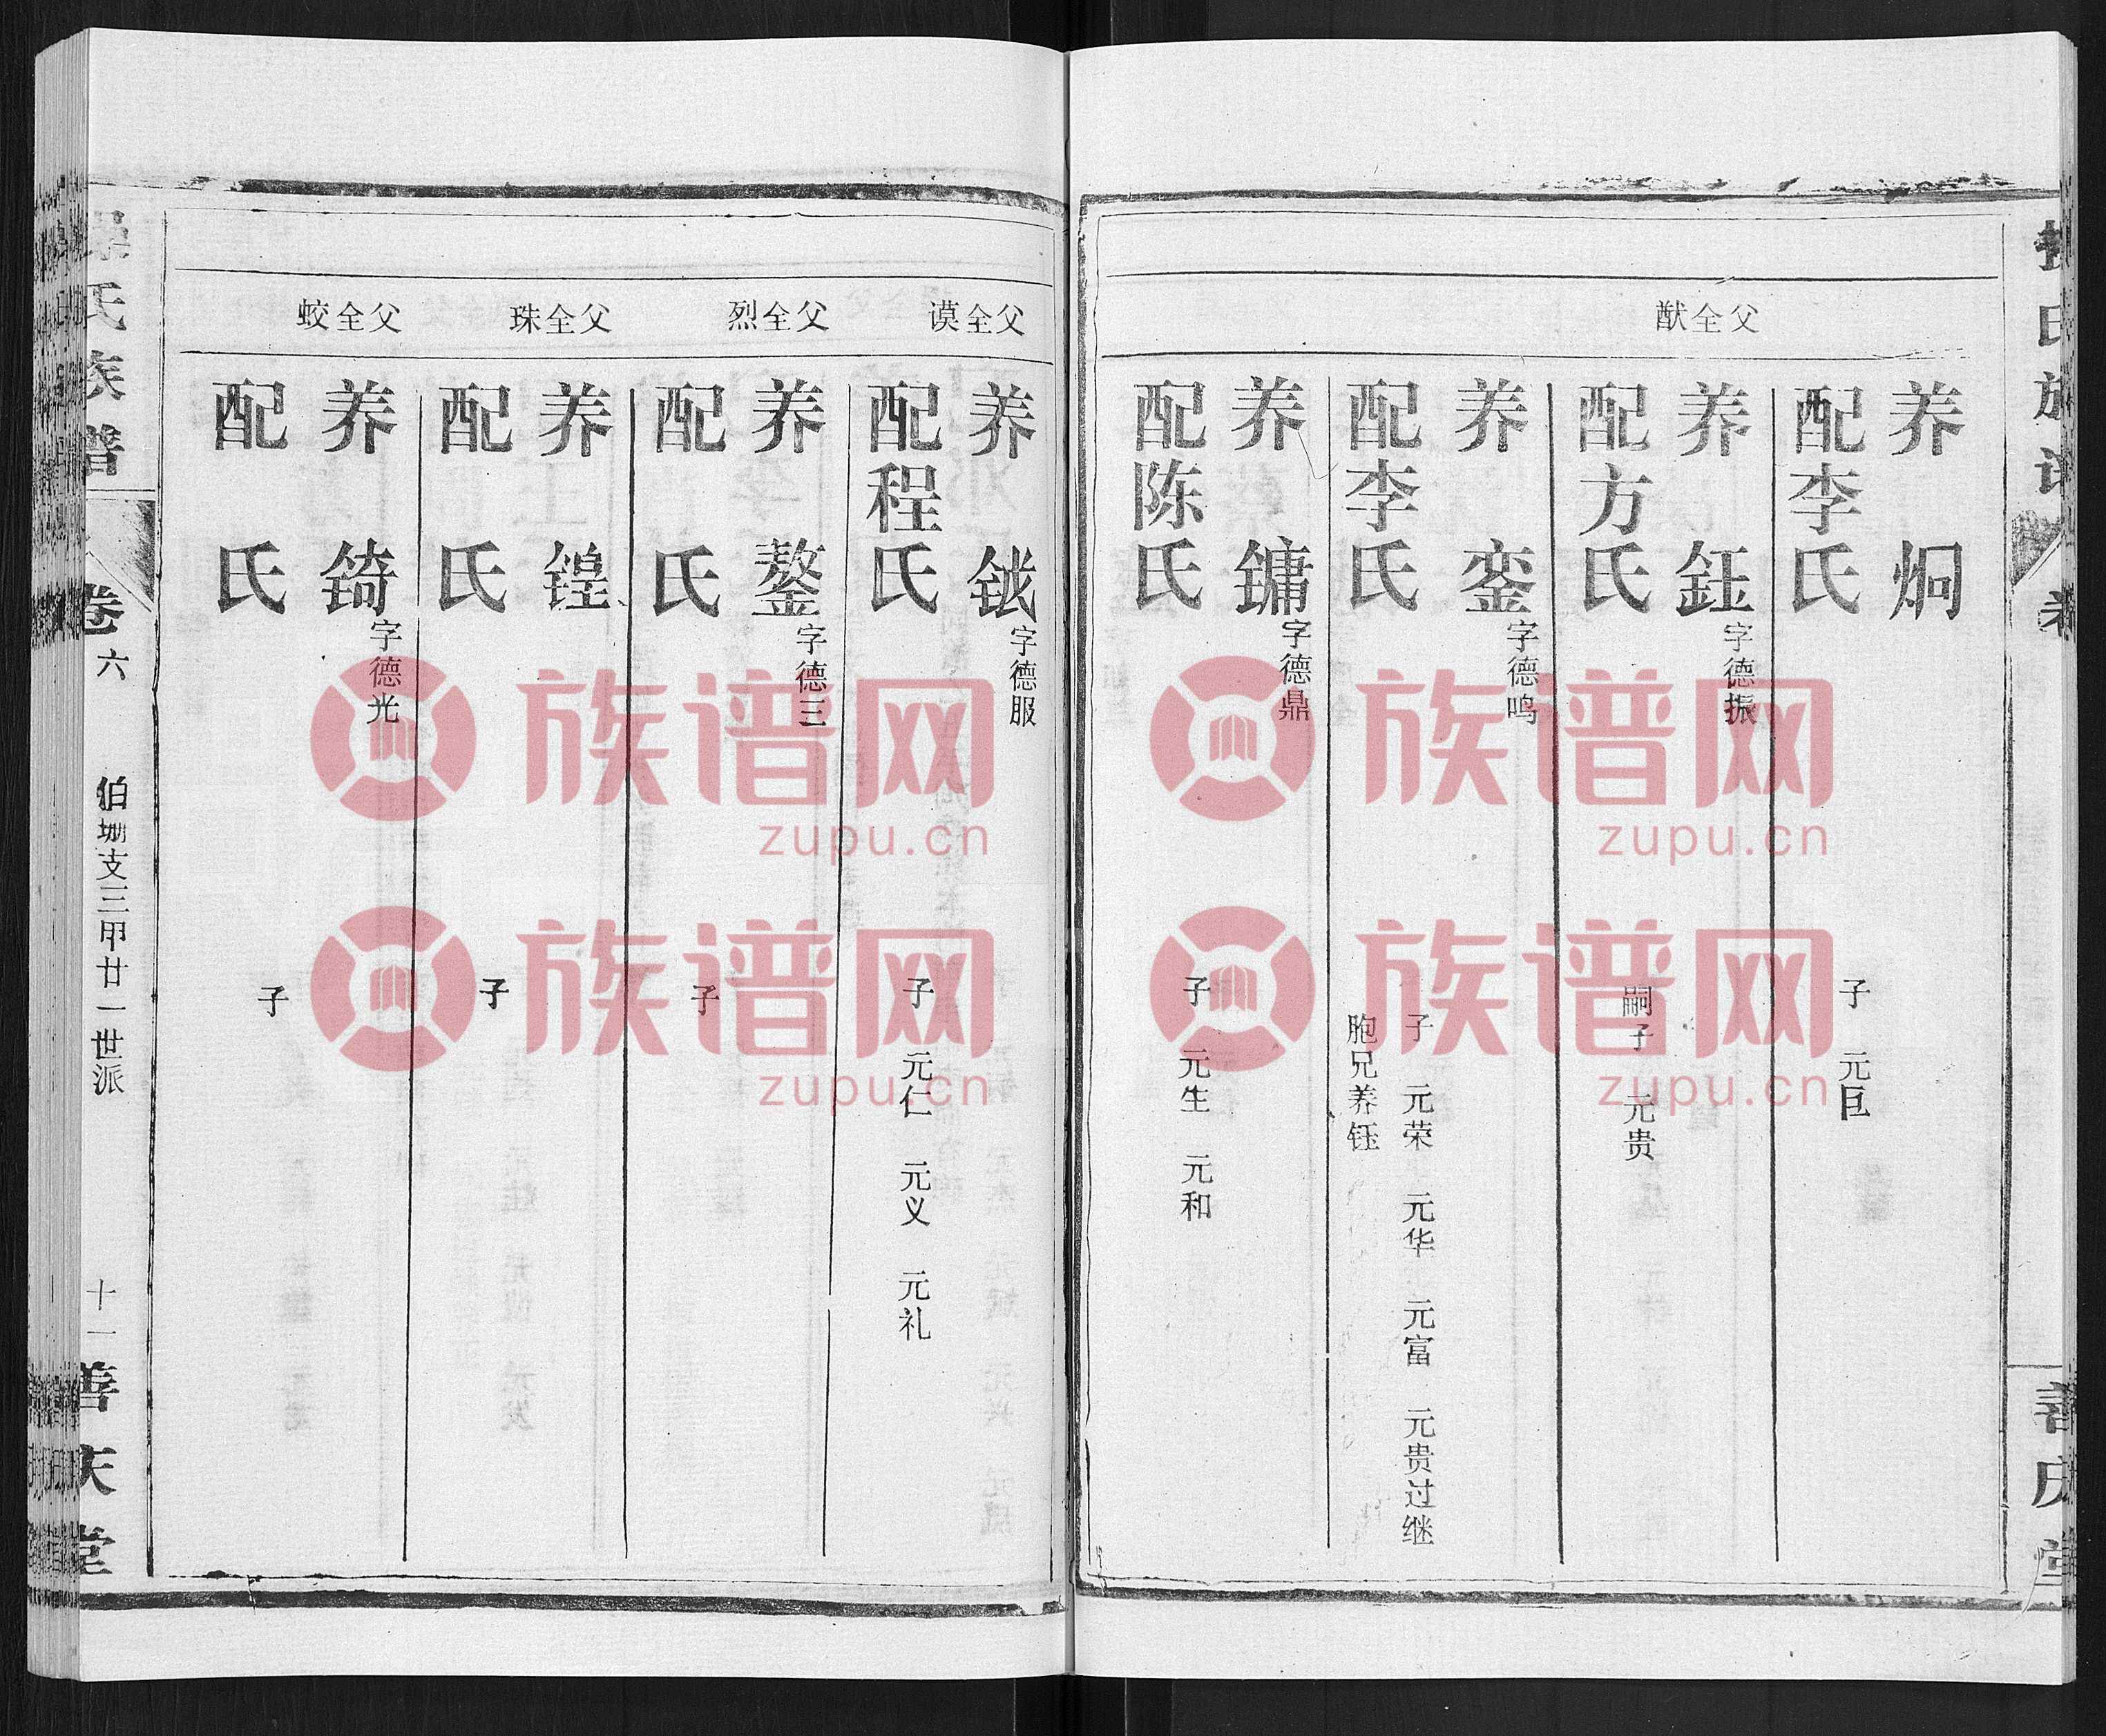 父仝猷
养 炯
配李氏
子 元巨
养 鈺 字德振
配方氏
嗣子 元贵
养 銮 字德鸣
配李氏
子 元荣 元华 元富 元贵过继
胞兄养钰
养 鏞 字德鼎
配陈氏
子 元生 元和
善庆堂
父仝谟
养 钺 字德服
配程氏
子 元仁 元义 元礼
父仝烈
养 鏊 字德三
配 氏
子
父仝珠
养 锽
配 氏
子
父仝蛟
养 锜 字德光
配 氏
子
氏族谱
卷六
伯塴支三甲廿一世派
十一
善庆堂
族谱网
zupu.cn
族谱网
zupu.cn
族谱网
zupu.cn
族谱网
zupu.cn